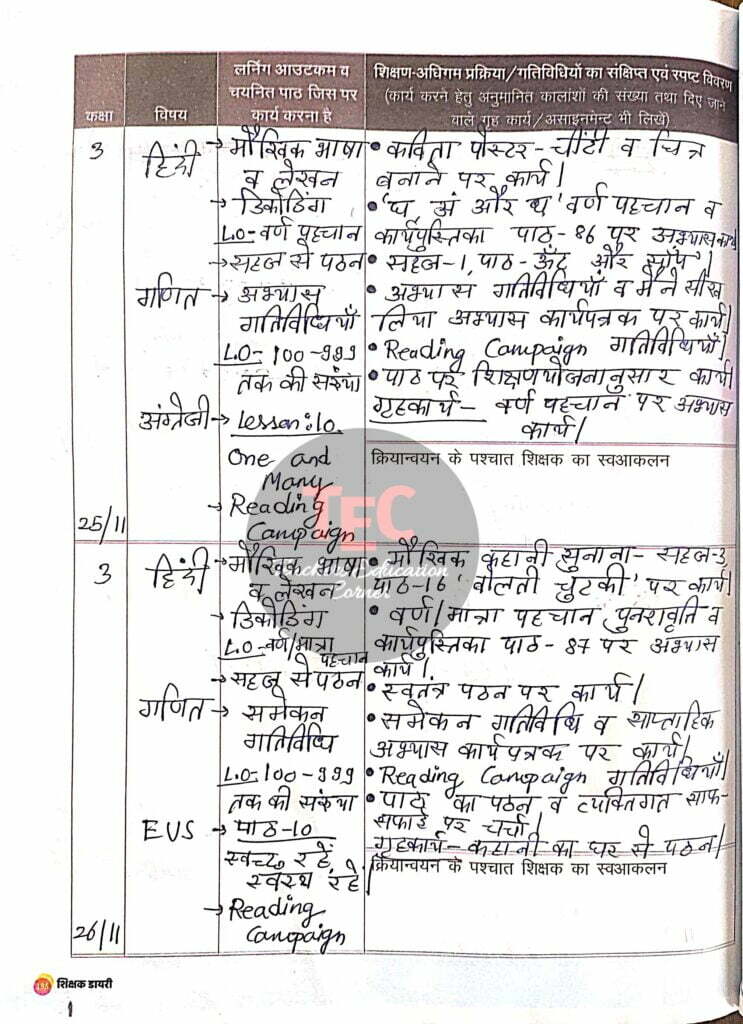 कक्षा
विषय
लर्निंग आउटकम व
चयनित पाठ जिस पर
कार्य करना है
शिक्षण-अधिगम प्रक्रिया/गतिविधियों का संक्षिप्त एवं स्पष्ट विवरण
(कार्य करने हेतु अनुमानित कालांशों की संख्या तथा दिए जाने
वाले गृह कार्य/असाइनमेन्ट भी लिखें)
3
हिंदी
→ मौखिक भाषा
व लेखन
→ डिकोडिंग
L.O- वर्ण पहचान
→ सहज से पठन
• कविता पोस्टर - चींटी व चित्र
बनाने पर कार्य।
• 'घ, अं और थ' वर्ण पहचान व
कार्यपुस्तिका पाठ - 86 पर अभ्यास कार्य
• सहज-1, पाठ- ऊँट और सांप।
गणित → अभ्यास
गतिविधियाँ
L.O- 100-999
तक की संख्या
• अभ्यास गतिविधियाँ व मैंने सीख
लिया अभ्यास कार्यपत्रक पर कार्य।
• Reading Campaign गतिविधियाँ।
• पाठ पर शिक्षणयोजनानुसार कार्य।
गृहकार्य - वर्ण पहचान पर अभ्यास
कार्य।
अंग्रेजी → Lesson:10.
One and
Many
→ Reading
Campaign
क्रियान्वयन के पश्चात शिक्षक का स्वआकलन
25/11
TEC
Teachers Education
Corner
3
हिंदी
→ मौखिक भाषा
व लेखन
→ डिकोडिंग
L.O- वर्ण/मात्रा
पहचान
→ सहज से पठन
• मौखिक कहानी सुनाना- सहज-3,
पाठ-16 'बोलती चुटकी' पर कार्य।
• वर्ण/मात्रा पहचान पुनरावृति व
कार्यपुस्तिका पाठ - 87 पर अभ्यास
कार्य।
• स्वतंत्र पठन पर कार्य।
गणित → समेकन
गतिविधि
L.O-100-999
तक की संख्या
• समेकन गतिविधि व साप्ताहिक
अभ्यास कार्यपत्रक पर कार्य।
• Reading Campaign गतिविधियाँ।
EVS → पाठ-10
स्वच्छ रहें,
स्वस्थ रहें।
→ Reading
Campaign
• पाठ का पठन व व्यक्तिगत साफ-
सफाई पर चर्चा।
गृहकार्य - कहानी का घर से पठन।
क्रियान्वयन के पश्चात शिक्षक का स्वआकलन
26/11
शिक्षक डायरी
1